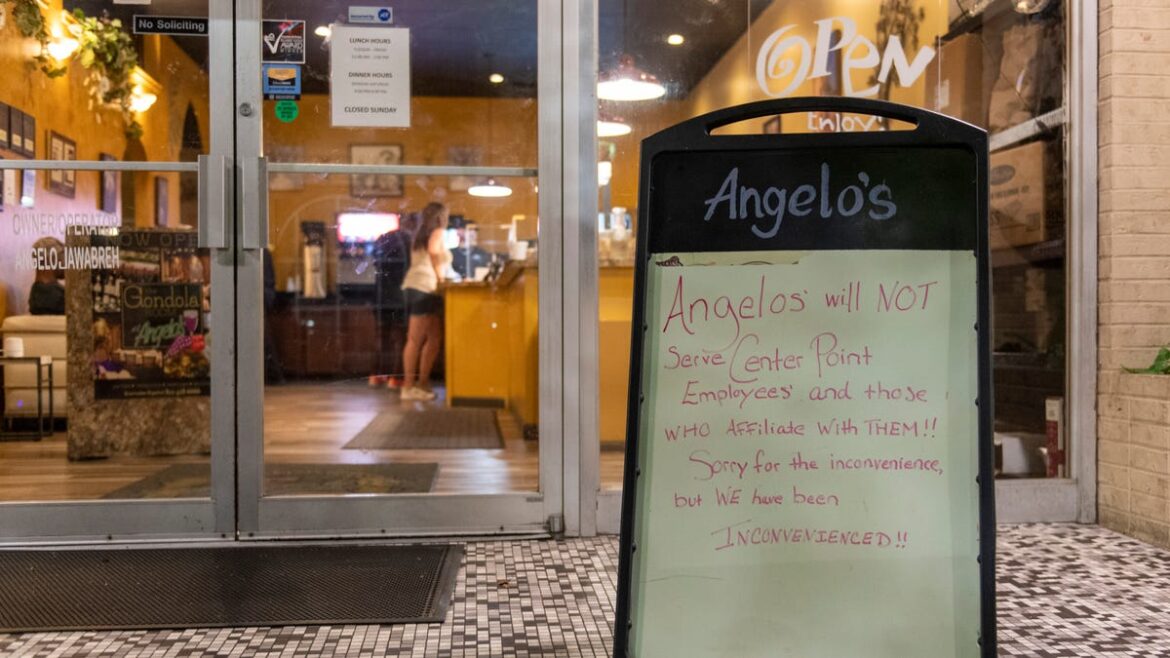 No Soliciting
LUNCH HOURS
DINNER HOURS
CLOSED SUNDAY
OPEN
Enjoy!
OWNER/OPERATOR
ANGELO JAWABREH
NOW OPEN
Gondola
Angelo's
Angelo's
Angelos' will NOT
Serve Center Point
Employees' and those
WHO AFFiliate With THEM!!
Sorry for the inconvenience,
but WE have been
INCONVENIENCED!!